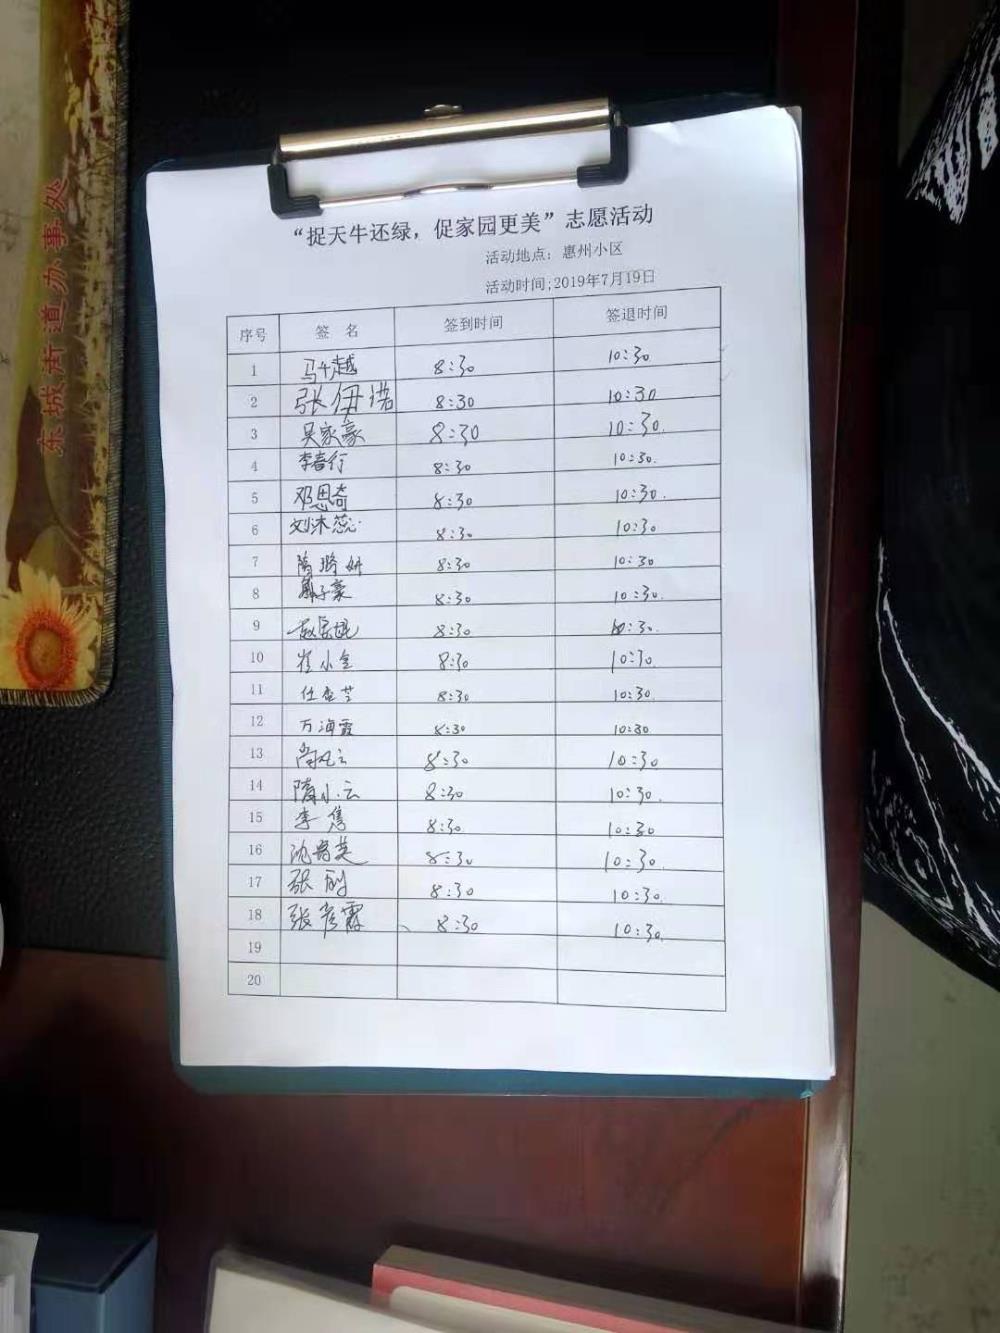 东城街道办事处
“捉天牛还绿，促家园更美”志愿活动
活动地点：惠州小区
活动时间;2019年7月19日
序号 签 名 签到时间 签退时间
1 马千越 8:30 10:30
2 张伊诺 8:30 10:30
3 吴家豪 8:30 10:30.
4 李春行 8:30 10:30.
5 邓思奇 8:30 10:30.
6 刘沐蕊 8:30 10:30
7 隋璐妍 8:30 10:30
8 子豪 8:30 10:30.
9 8:30 10:30.
10 崔小全 8:30 10:30.
11 8:30 10:30.
12 万海霞 8:30 10:30
13 尚凡云 8:30 10:30
14 隋小云 8:30 10:30.
15 李隽 8:30 10:30
16 沈 英 8:30 10:30.
17 张 8:30 10:30.
18 张彦霖 8:30 10:30.
19
20